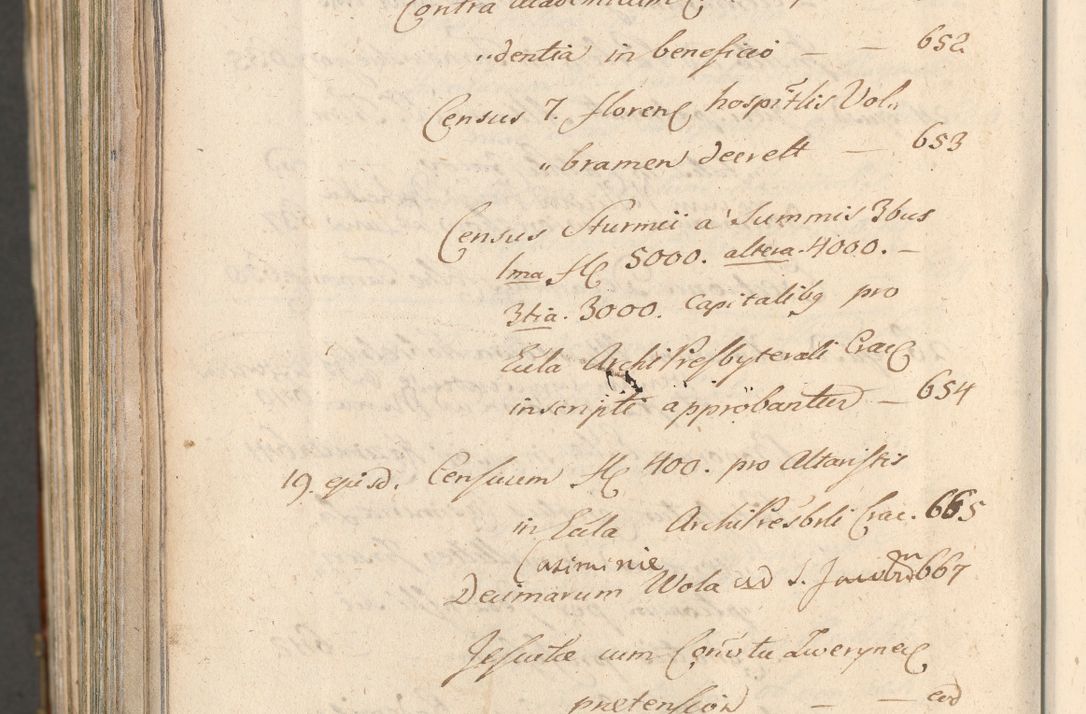 Contra
„dentia in beneficio — — 652
Census 7. floren hospitlis Vol„
„bramen decrett — 653
Census Sturmii a Summis 3bus
1ma fl 5000. altera 4000. —
3tia. 3000. Capitalibg pro
Eccla ArchiPresbyterali Crac
inscripti approbantur — 654
19. ejusd. Censuum fl 400. pro Altaristis
in Eccla ArchiPresbrli Crac. 665
Casimirie
Decimarum Wola ad S. 667
Jesuitæ cum Convtu Zwerynec
pretension — — eod